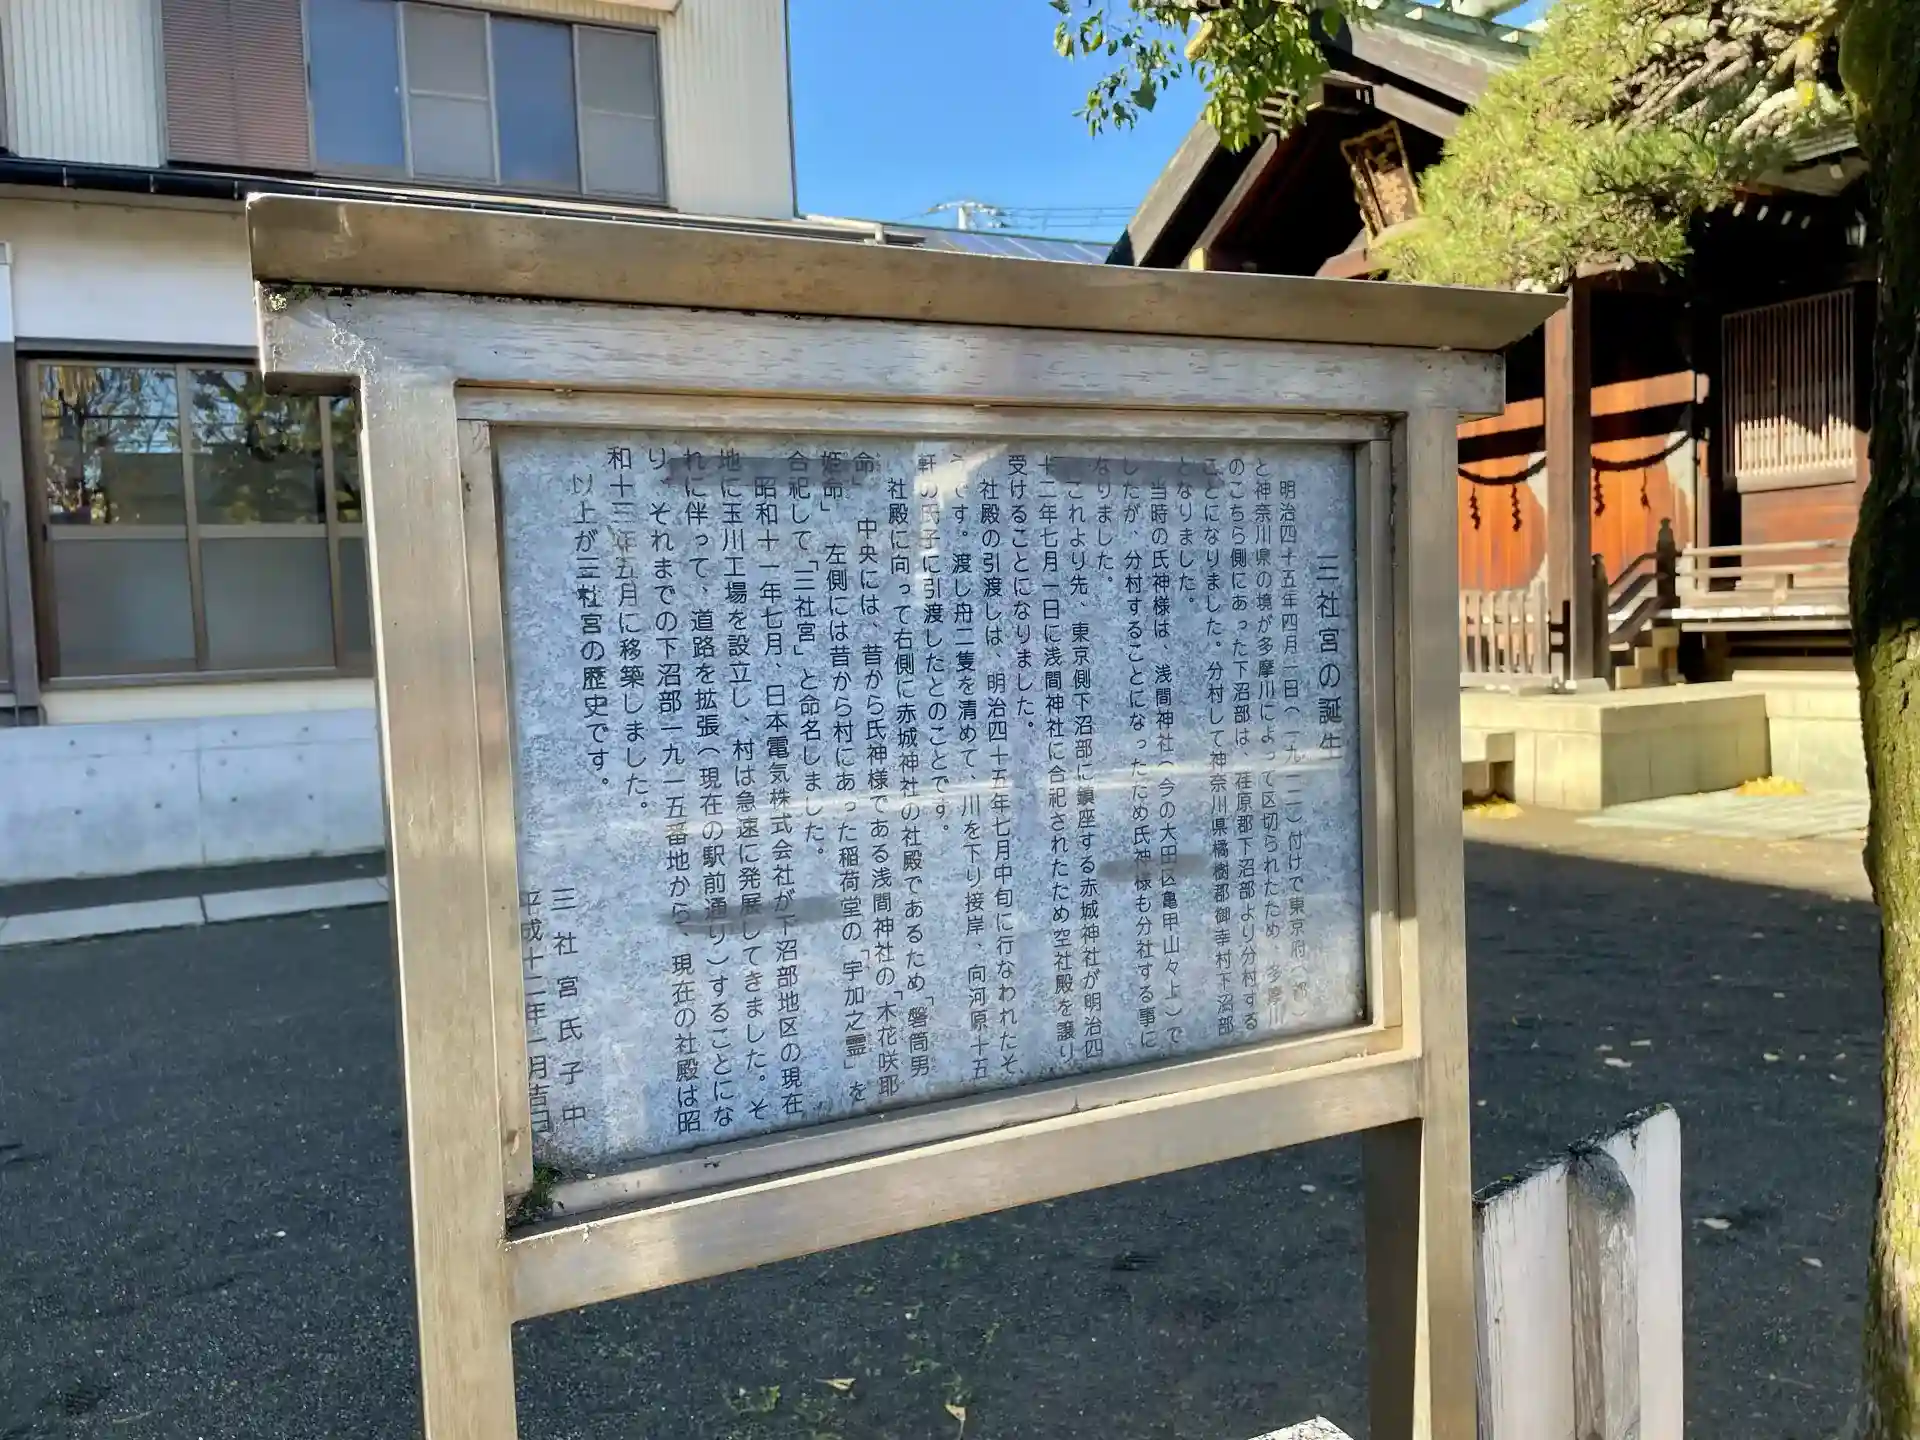 三社宮の誕生
明治四十五年四月一日（一九一二）付けで東京府（都）
と神奈川県の境が多摩川によって区切られたため、多摩川
のこちら側にあった下沼部は、荏原郡下沼部より分村する
ことになりました。分村して神奈川県橘樹郡御幸村下沼部
となりました。
当時の氏神様は、浅間神社（今の大田区亀甲山々上）で
したが、分村することになったため氏神様も分社する事に
なりました。
これより先、東京側下沼部に鎮座する赤城神社が明治四
十二年七月一日に浅間神社に合祀されたため空社殿を譲り
受けることになりました。
社殿の引渡しは、明治四十五年七月中旬に行なわれたそ
うです。渡し舟二隻を清めて、川を下り接岸、向河原十五
軒の氏子に引渡したとのことです。
社殿に向って右側に赤城神社の社殿であるため「磐筒男
命」 中央には、昔から氏神様である浅間神社の「木花咲耶
姫命」 左側には昔から村にあった稲荷堂の「宇加之霊」を
合祀して「三社宮」と命名しました。
昭和十一年七月、日本電気株式会社が下沼部地区の現在
地に玉川工場を設立し、村は急速に発展してきました。そ
れに伴って、道路を拡張（現在の駅前通り）することにな
り、それまでの下沼部一九一五番地から、現在の社殿は昭
和十三年五月に移築しました。
以上が三社宮の歴史です。
三社宮氏子中
平成十二年一月吉日